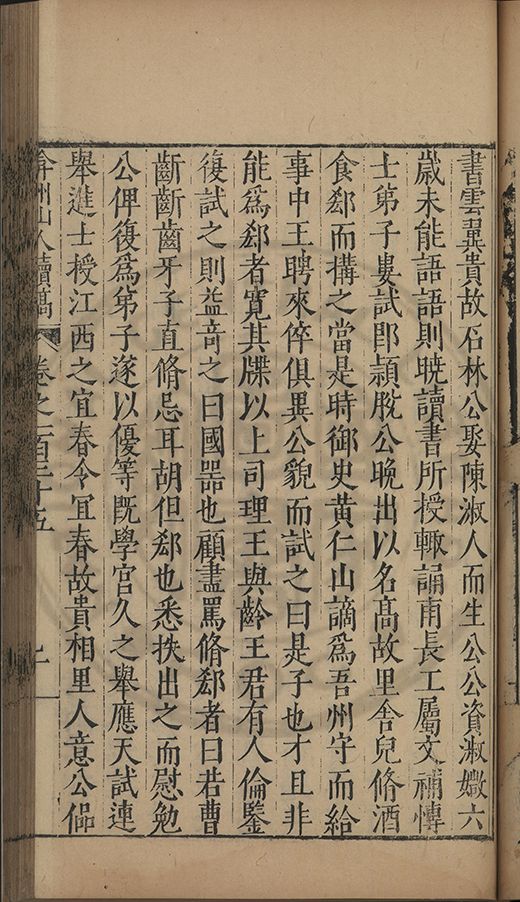 書雲冀貴故石林公娶陳淑人而生公公資淑媺六
歲未能語語則曉讀書所授輒誦甫長工屬文補愽
士弟子婁試即頴脫公晚出以名高故里舍兒脩酒
食郄而搆之當是時御史黄仁山謫爲吾州守而給
事中王聘來倅俱異公貌而試之曰是子也才且非
能爲郄者寛其牒以上司理王與齡王君有人倫鑒
復試之則益奇之曰國器也顧盡罵脩郄者曰若曹
齗齗齒牙子直脩忌耳胡但郄也悉抶出之而慰勉
公俾復爲弟子遂以優等旣學宮久之舉應天試連
舉進士授江西之宜春令宜春故貴相里人意公偘
弇州山人續稿 卷之一百三十五